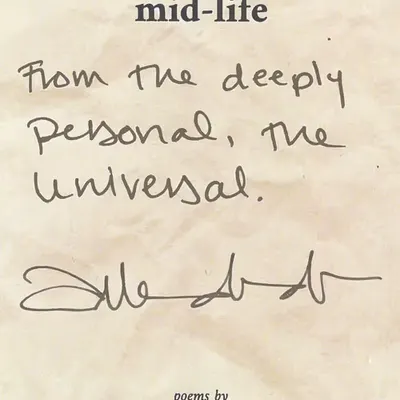 mid-life
From the deeply
personal, the
universal.
poems by